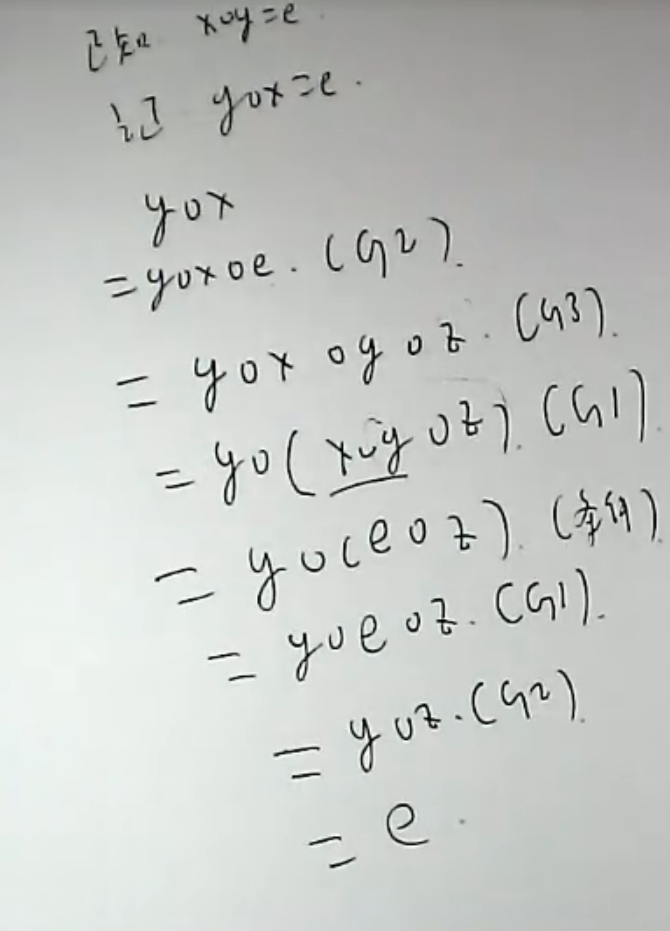 已知 x∘y=e.
证 y∘x=e.
y∘x
=y∘x∘e. (G2).
= y∘x∘y∘z. (G3).
= y∘(x∘y∘z). (G1).
= y∘(e∘z). (条件).
= y∘e∘z. (G1).
= y∘z. (G2).
= e.